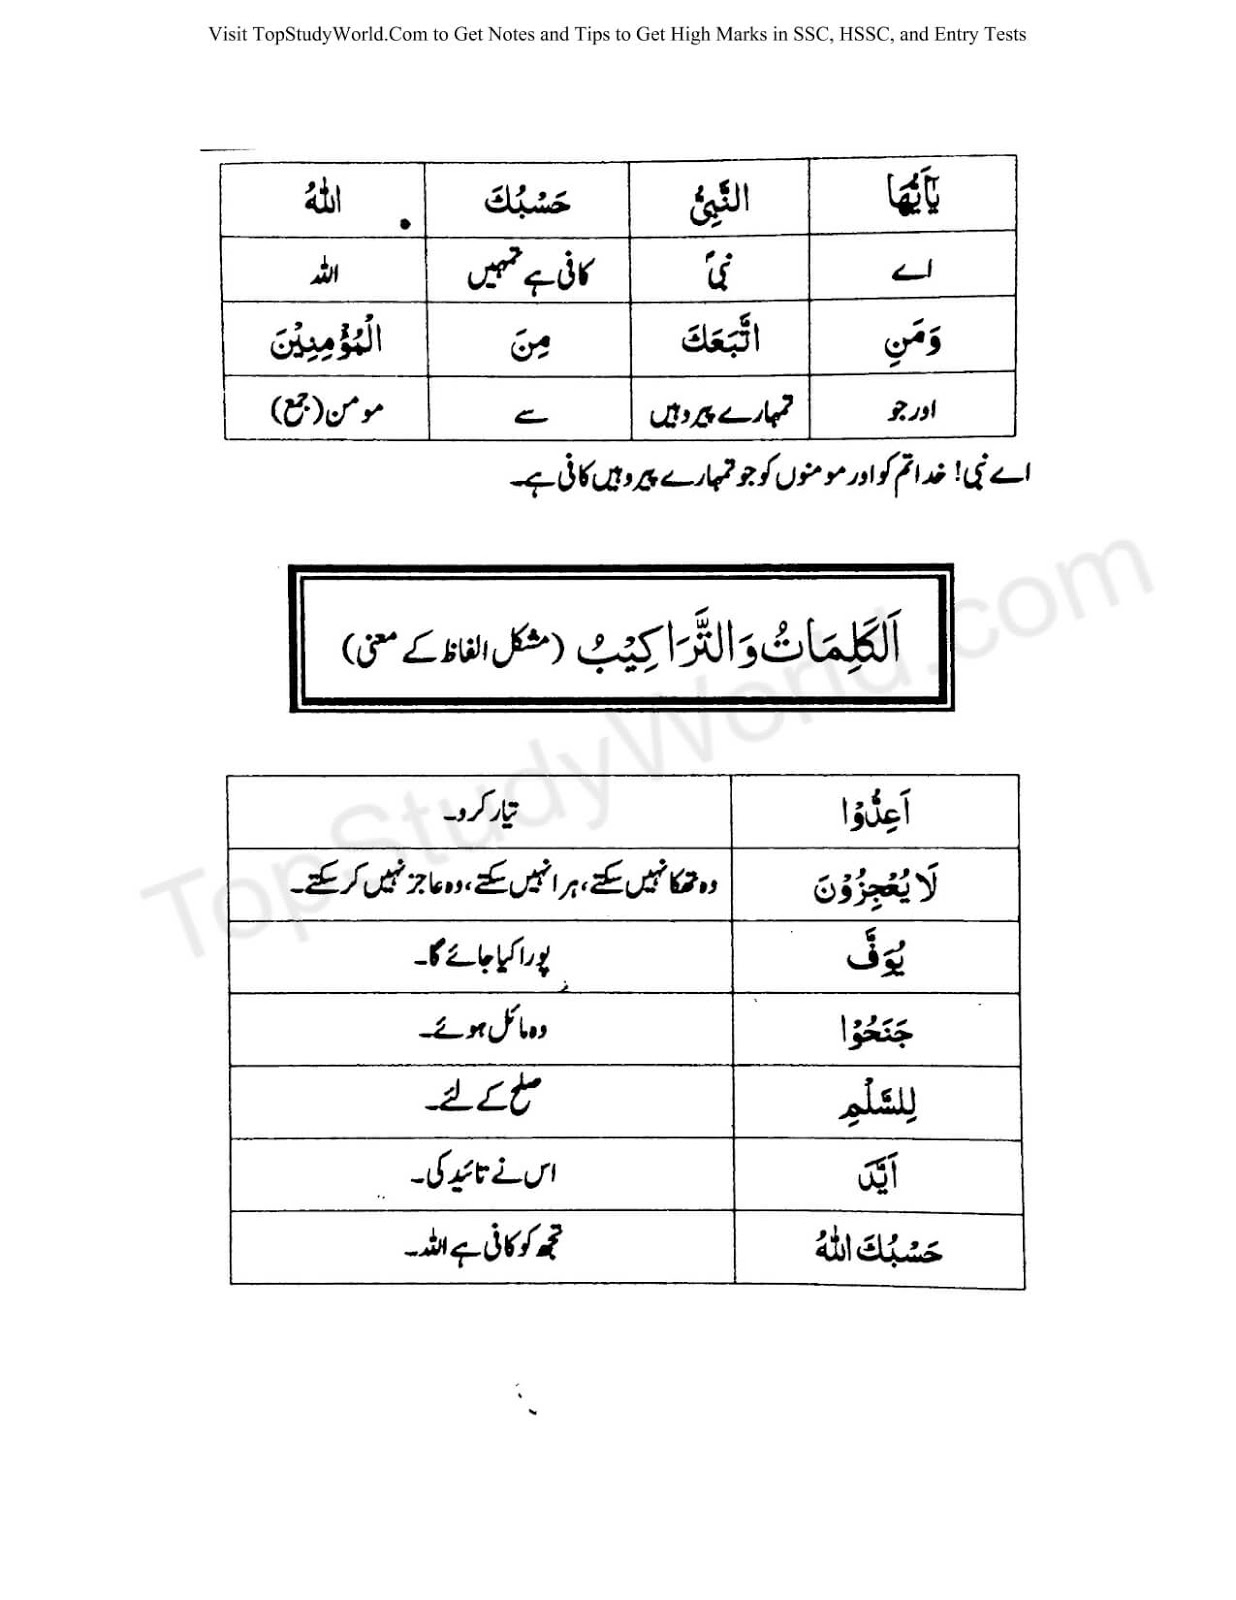 Visit TopStudyWorld.Com to Get Notes and Tips to Get High Marks in SSC, HSSC, and Entry Tests
يٰٓاَيُّهَا النَّبِيُّ حَسْبُكَ اللّٰهُ
اے نبیؐ کافی ہے تمہیں اللہ
وَمَنِ اتَّبَعَكَ مِنَ الْمُؤْمِنِيْنَ
اور جو تمہارے پیرو ہیں سے مومن (جمع)
اے نبی! خدا تم کو اور مومنوں کو جو تمہارے پیرو ہیں کافی ہے۔
اَلْكَلِمَاتُ وَالتَّرَاكِيْبُ (مشکل الفاظ کے معنی)
اَعِدُّوْا تیار کرو۔
لَا يُعْجِزُوْنَ وہ تھکا نہیں سکتے، ہرا نہیں سکتے، وہ عاجز نہیں کر سکتے۔
يُوَفَّ پورا کیا جائے گا۔
جَنَحُوْا وہ مائل ہوئے۔
لِلسَّلْمِ صلح کے لئے۔
اَيَّدَ اس نے تائید کی۔
حَسْبُكَ اللّٰهُ تجھ کو کافی ہے اللہ۔
TopStudyWorld.com